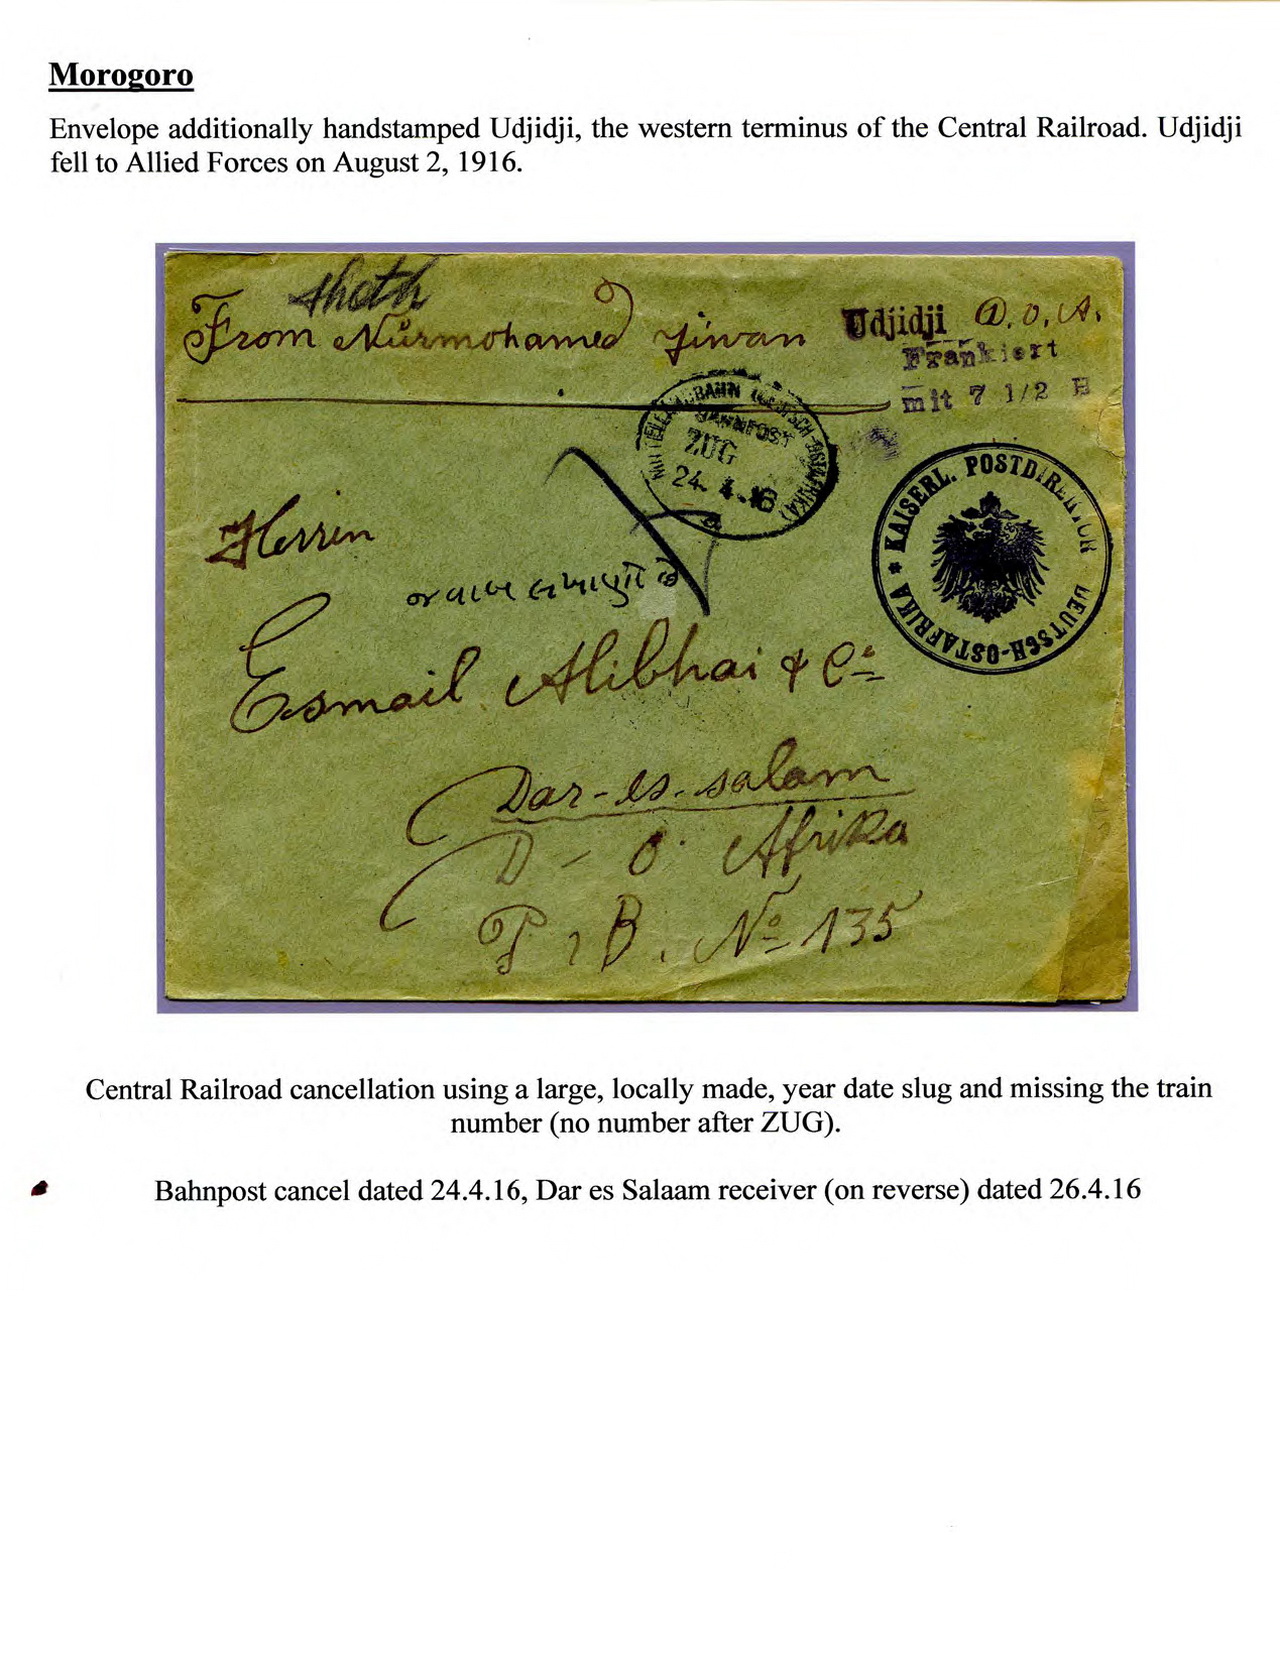 Morogoro
Envelope additionally handstamped Udjidji, the western terminus of the Central Railroad. Udjidji
fell to Allied Forces on August 2, 1916.
Sheth
From Nurmohamed Jiwan
Udjidji D. O. A.
Frankiert
mit 7 1/2 H
MITTELLANDBAHN (DEUTSCH-OSTAFRIKA)
BAHNPOST
ZUG
24. 4. 16
KAISERL. POSTDIREKTION DEUTSCH-OSTAFRIKA *
Herrn
Esmail Alibhai & Co
Dar-es-salam
D - O. Afrika
P. B. No 135
Central Railroad cancellation using a large, locally made, year date slug and missing the train
number (no number after ZUG).
Bahnpost cancel dated 24.4.16, Dar es Salaam receiver (on reverse) dated 26.4.16